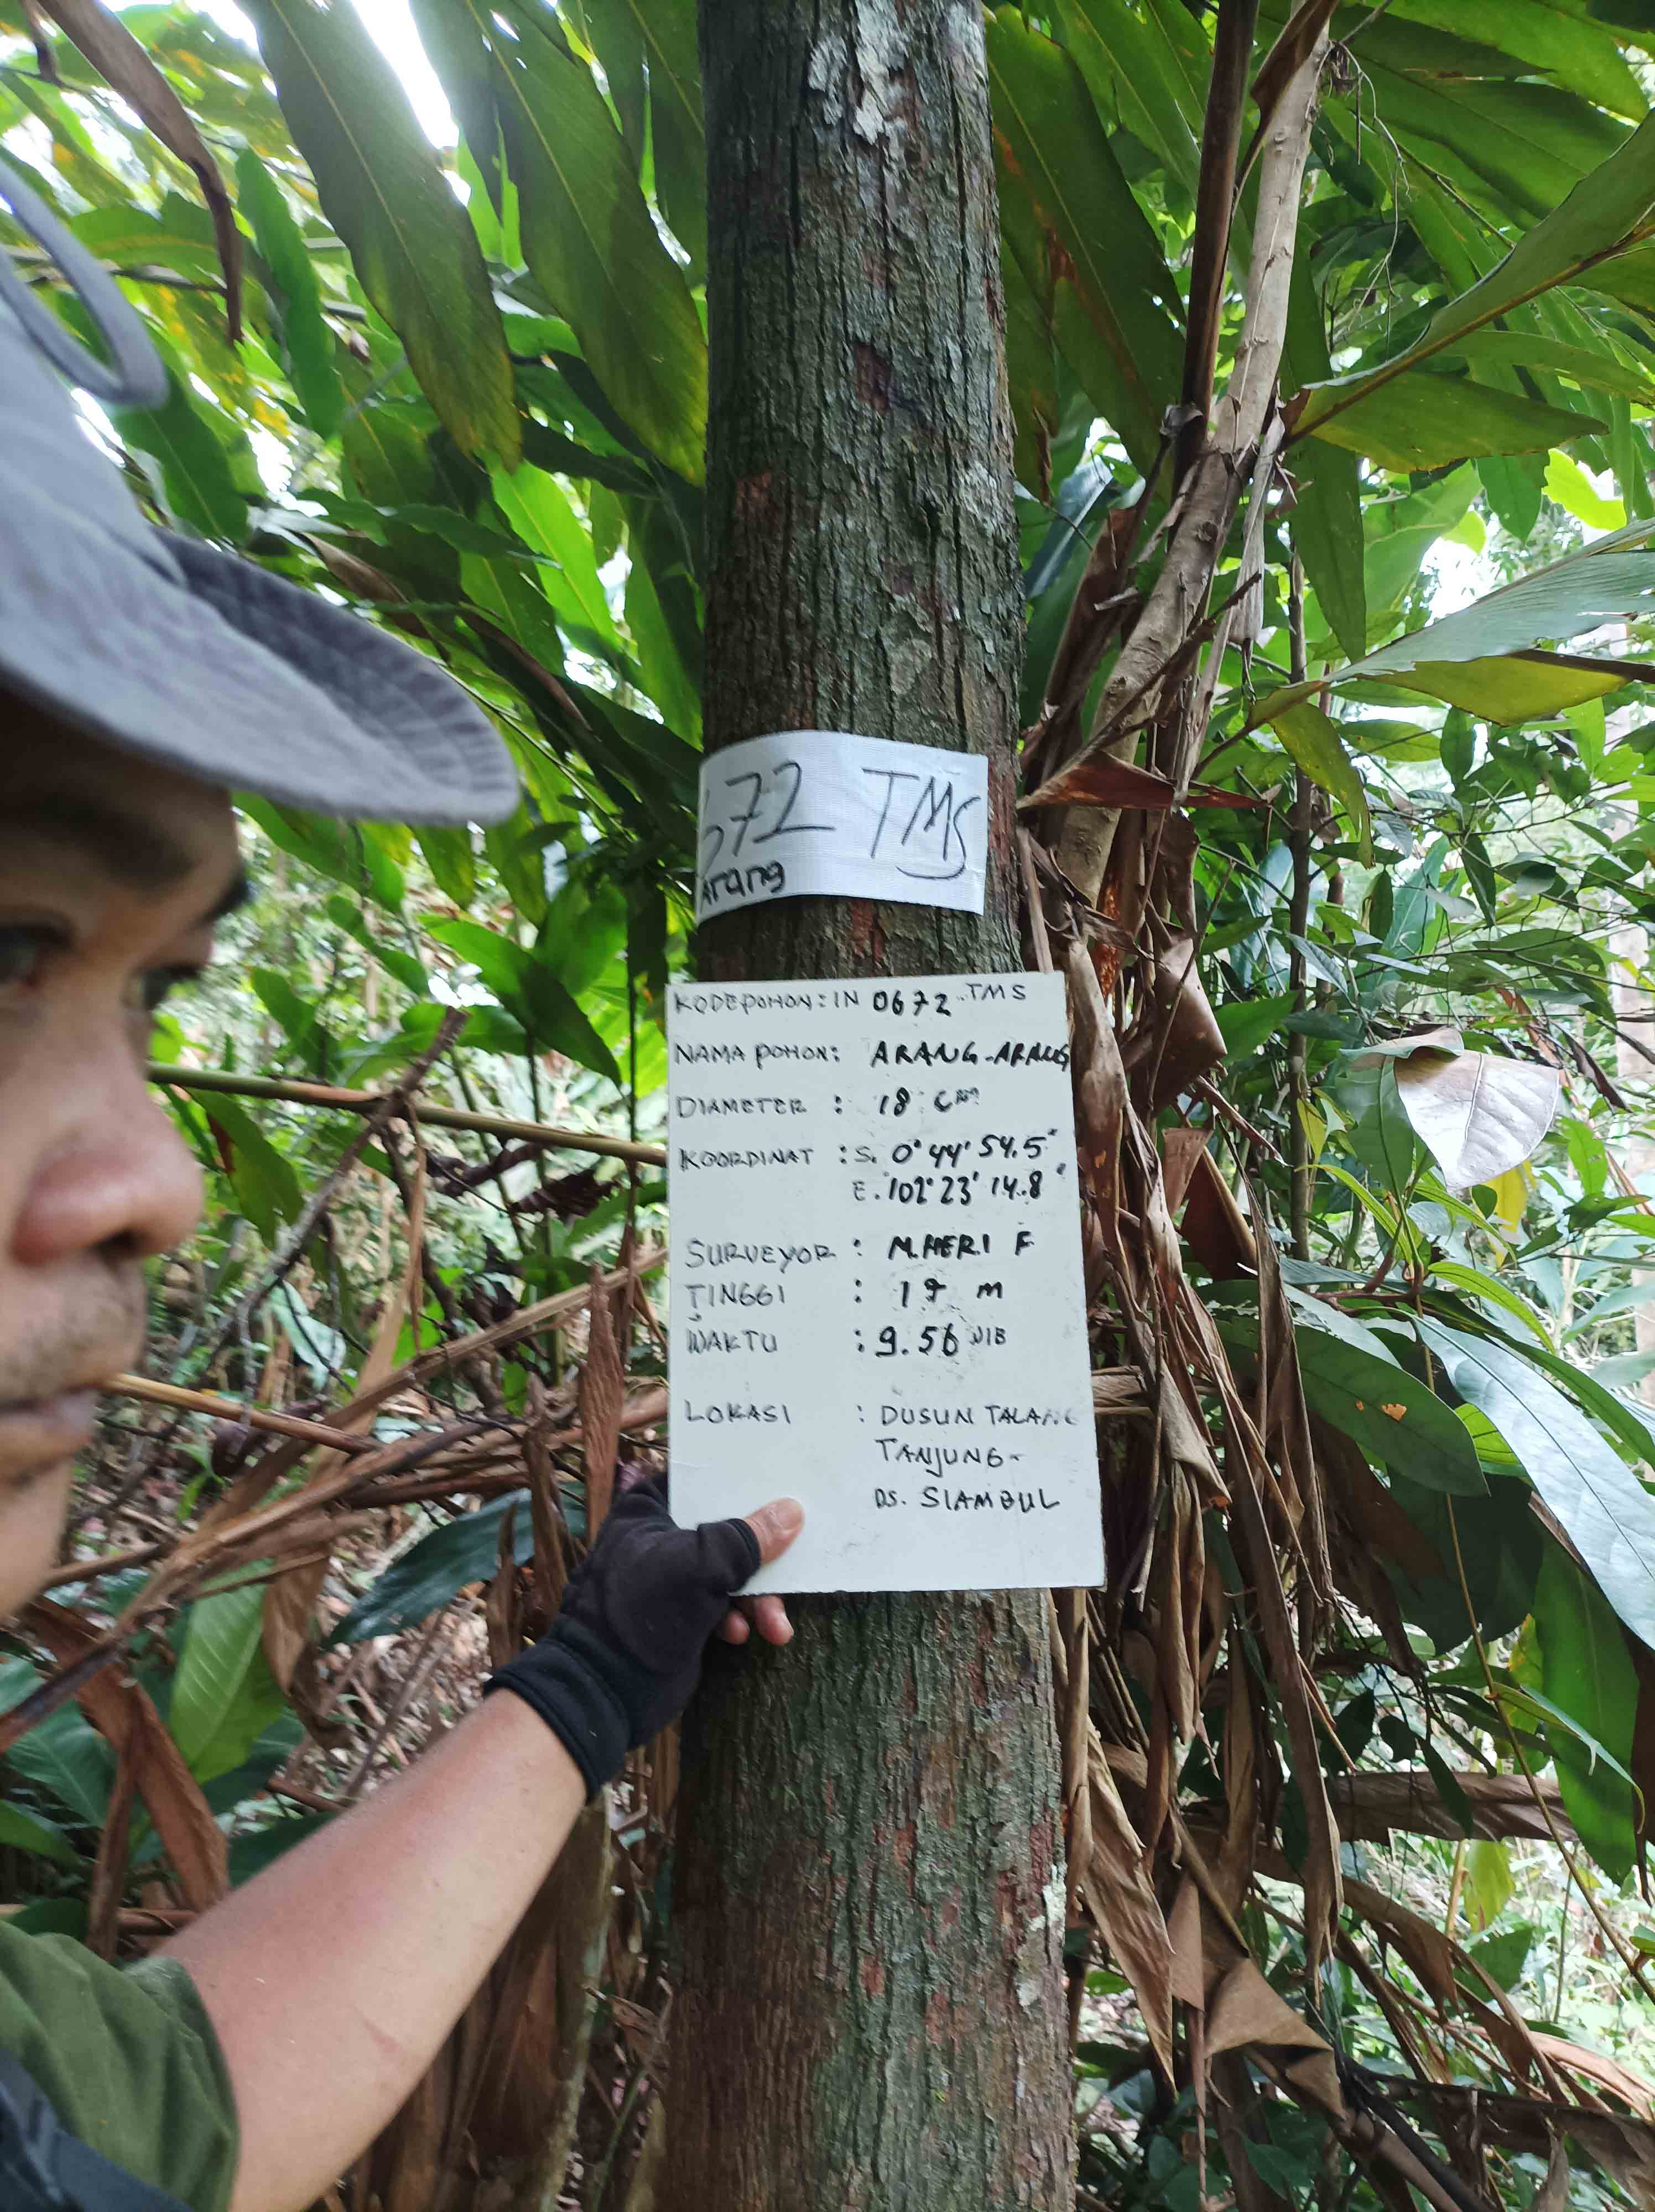 672 TMS
Arang
KODE POHON : IN 0672 TMS
NAMA POHON : ARANG-ARANG
DIAMETER : 18 CM
KOORDINAT : S. 0° 44' 54.5"
E. 102° 23' 14.8"
SURVEYOR : M.HERI F
TINGGI : m
WAKTU : 9.56 WIB
LOKASI : DUSUN TALANG
TANJUNG-
DS. SIAMBUL